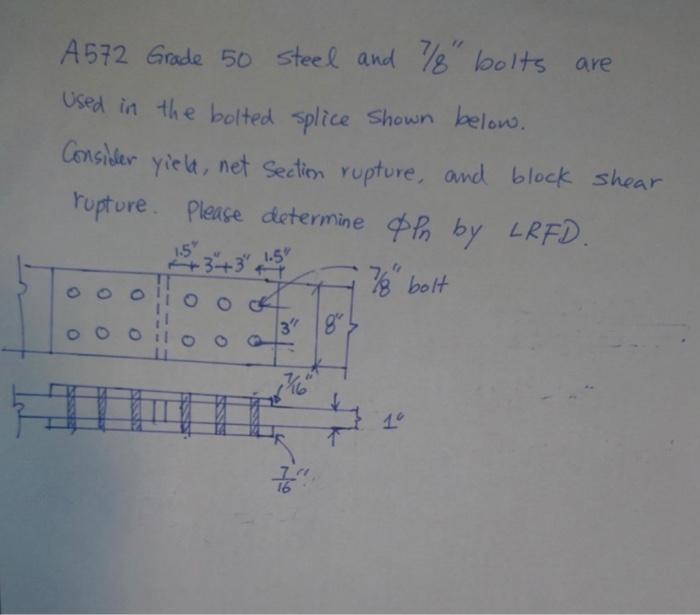 A572 Grade 50 steel and 7/8" bolts are
used in the bolted splice shown below.
Consider yield, net section rupture, and block shear
rupture. Please determine ϕPn by LRFD.
1.5" 3" 3" 1.5"
7/8" bolt
3" 8"
7/16"
1"
7/16"